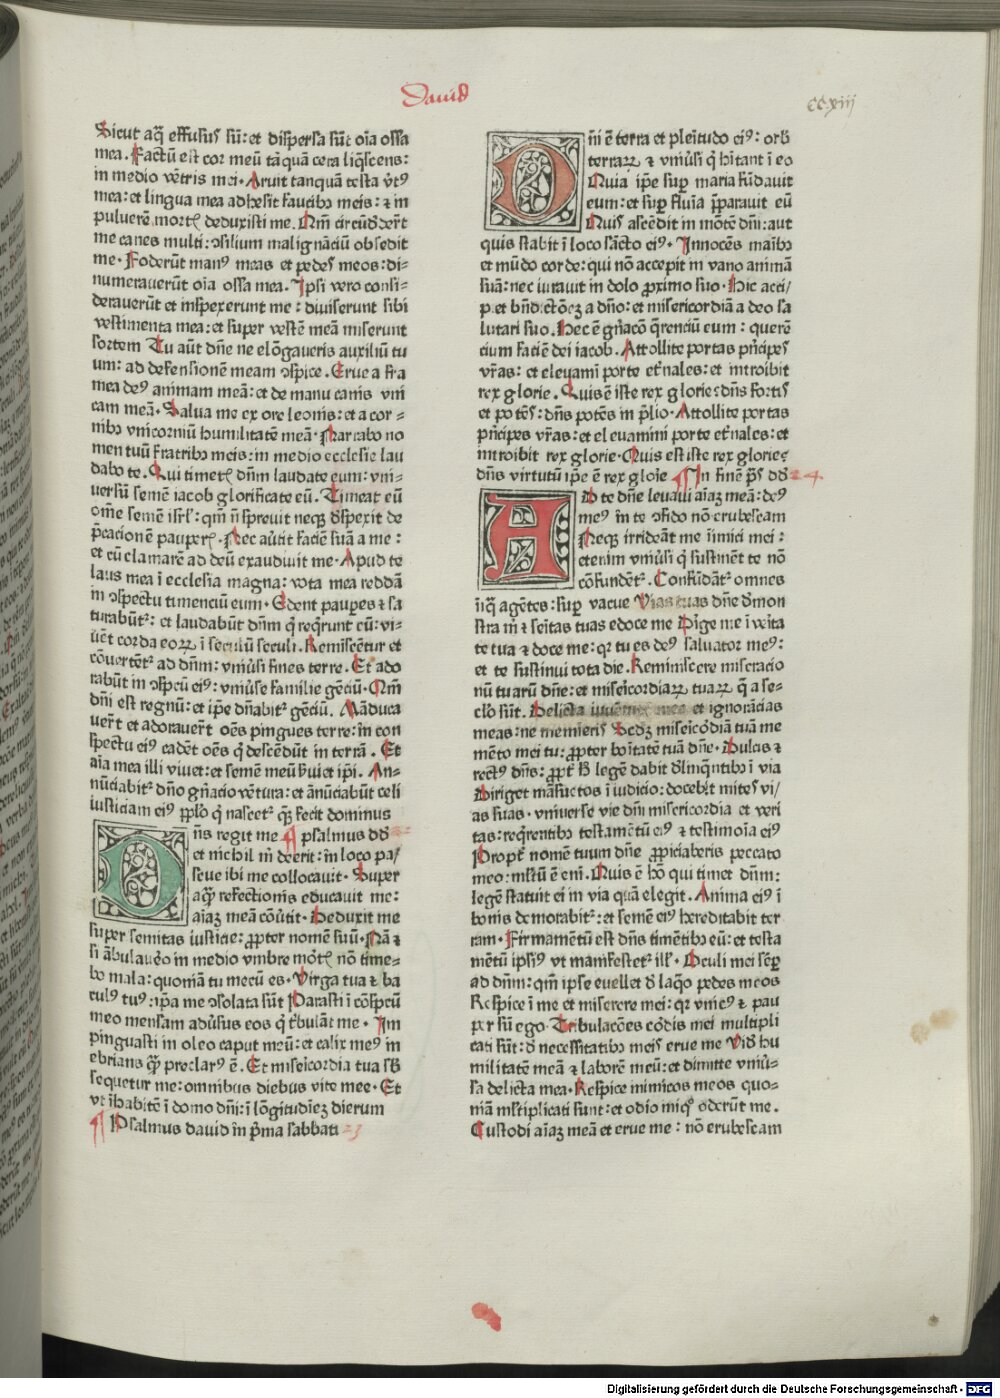 Dauid
CCxiij
Sicut aq̄ effusus sū: et dispersa sūt oīa ossa
mea. Factū est cor meū tāquā cera liq̄scens:
in medio vētris mei. Aruit tanquā testa v̓tꝰ
mea: et lingua mea adhesit faucibꝫ meis: ⁊ in
puluerē mortꝭ deduxisti me. Qm̄ circūdēr̄t
me canes multi: ꝯsilium malignāciū obsedit
me. Foderūt manꝰ meas et pedes meos: di-
numerauerūt oīa ossa mea. Ipsi vero consi-
derauerūt et inspexerunt me: diuiserunt sibi
vestimenta mea: et super vestē meā miserunt
sortem Tu aūt dn̄e ne elōgaueris auxiliū tu
um: ad defensionē meam ꝯspice. Erue a fra
mea deꝰ animam meā: et de manu canis vni
cam meā. Salua me ex ore leonis: et a cor-
nibꝫ vnicorniū humilitatē meā. Narrabo no
men tuū fratribꝫ meis: in medio ecclesie lau
dabo te. Qui timetꝭ dn̄m laudate eum: vni-
uersū semē iacob glorificate eū. Timeat eū
om̄e semē isrl̓: qm̄ n̄ spreuit necꝫ dspexit de
p̄cacionē pauperꝭ. Nec au̓tit faciē suā a me:
et cū clamarē ad deū exaudiuit me. Apud te
laus mea ī ecclesia magna: vota mea reddā
in ꝯspectu timenciū eum. Edent paupes ⁊ sa
turabūtˀ: et laudabūt dn̄m q̄ reqr̄unt eū: vi-
uēt corda eoꝝ ī seculū seculi. Remiscētur et
cōuertētˀ ad dn̄m: vniu̓si fines terre. Et ado
rabūt in ꝯspcū eiꝰ: vniu̓se familie gēciū. Qm̄
dn̄i est regnū: et ip̄e dn̄abitˀ gēciū. Māduca
uer̄t et adorauer̄t oēs pingues terre: in con
spectu eiꝰ cadēt oēs q̄ descēdūt in terrā. Et
aīa mea illi viuet: et semē meū s̓uiet ip̄i. An-
nūciabitˀ dn̄o gn̄acio vētura: et ānūciabūt celi
iusticiam eiꝰ ppl̓o q̄ nascetˀ q̄ꝫ fecit dominus
D n̄s regit me ¶ psalmus dd̓
et nichil m̄ deerit: in loco pa/
scue ibi me collocauit. Super
aq̄ꝫ refectionis educauit me:
aīaꝫ meā cōu̓tit. Deduxit me
super semitas iusticie: ꝓpter nomē suū. Nā ⁊
si ābulauēo in medio vmbre mōtꝭ nō time-
bo mala: quoniā tu mecū es. Virga tua ⁊ ba
culꝰ tuꝰ: ip̄a me ꝯsolata sūt Parasti ī cōspcū
meo mensam adu̓sus eos q̄ t̓bulāt me. Im
pinguasti in oleo caput meū: et calix meꝰ in
ebrians q̄ꝫ preclarꝰ ē. Et mis̓icordia tua sb̓
sequetur me: omnibus diebus vite mee. Et
vt īhabitē ī domo dn̄i: ī lōgitudīeꝫ dierum
¶ Psalmus dauid in p̄ma sabbati 23
D n̄i ē terra et pleītudo eiꝰ: orb̓
terraꝝ ⁊ vniu̓si q̄ hītant ī eo
Quia ip̄e sup̱ maria fūdauit
eum: et sup̱ fluīa p̄parauit eū
Quis ascēdit in mōtē dn̄i: aut
quis stabit ī loco sācto eiꝰ. Innocēs maībꝫ
et mūdo corde: qui nō accepit in vano animā
suā: nec iurauit in dolo ꝓximo suo. Hic acci/
p̱et bn̄dictōeꝫ a dn̄o: et misericordiā a deo sa
lutari suo. Hec ē gn̄acō q̄renciū eum: querē
cium faciē dei iacob. Attollite portas pn̄cipes
vr̄as: et eleuamī porte et̓nales: et introibit
rex glorie. Quis ē iste rex glorie: dn̄s fortis
et potēs: dn̄s potēs in p̄lio. Attollite portas
pn̄cipes vr̄as: et eleuamini porte et̓nales: et
introibit rex glorie. Quis est iste rex glorie:
dn̄s virtutū ip̄e ē rex glorie ¶ In finē p̄s dd̓ 24
A D te dn̄e leuaui aīaꝫ meā: deꝰ
meꝰ in te ꝯfido nō erubescam
Necꝫ irrideāt me īimici mei:
etenim vniu̓si q̄ sustinēt te nō
cōfundētˀ. Confūdātˀ omnes
iīq̄ agētes: sup̱ vacue Vias tuas dn̄e d̓mon
stra m̄ ⁊ seītas tuas edoce me Dirige me ī v̓ita
te tua ⁊ doce me: qꝛ tu es deꝰ saluator meꝰ:
et te sustinui tota die. Reminiscere miseracio
nū tuarū dn̄e: et mis̓icordiaꝝ tuaꝝ q̄ a se-
cl̓o sūt. Delicta iuuētutꝭ mee et ignorācias
meas: ne memīeris Scdꝫ mis̓icōdiā tuā me
mēto mei tu: ꝓpter boītatē tuā dn̄e. Dulcis ⁊
rectꝰ dn̄s: ꝓpt̓ h̓ legē dabit d̓linq̄ntibꝫ ī via
Diriget māsuetos ī iudicio: docebit mites vi/
as suas. Vniuerse vie dn̄i misericordia et veri
tas: reqr̄entibꝫ testamētū eiꝰ ⁊ testimoīa eiꝰ
Propt̓ nomē tuum dn̄e ꝓpiciaberis peccato
meo: mltū ē em̄. Quis ē hō qui timet dn̄m:
legē statuit ei in via quā elegit. Anima eiꝰ ī
bonis demorabitˀ: et semē eiꝰ hereditabit ter
ram. Firmamētū est dn̄s timētibꝫ eū: et testa
mētū ipsiꝰ vt manifestetˀ ill̓. Oculi mei semp̱
ad dn̄m: qm̄ ipse euellet d̓ laq̓o pedes meos
Respice ī me et miserere mei: qꝛ vnicꝰ ⁊ pau
per sū ego. Tribulacōes cōdis mei multipli
cati sūt: d̓ necessitatibꝫ meis erue me Vid̓ hu
militatē meā ⁊ laborē meū: et dimitte vniu̓-
sa delicta mea. Respice inimicos meos quo-
niā mltiplicati sunt: et odio miq̓ oderūt me.
Custodi aīaꝫ meā et erue me: nō erubescam
Digitalisierung gefördert durch die Deutsche Forschungsgemeinschaft - DFG